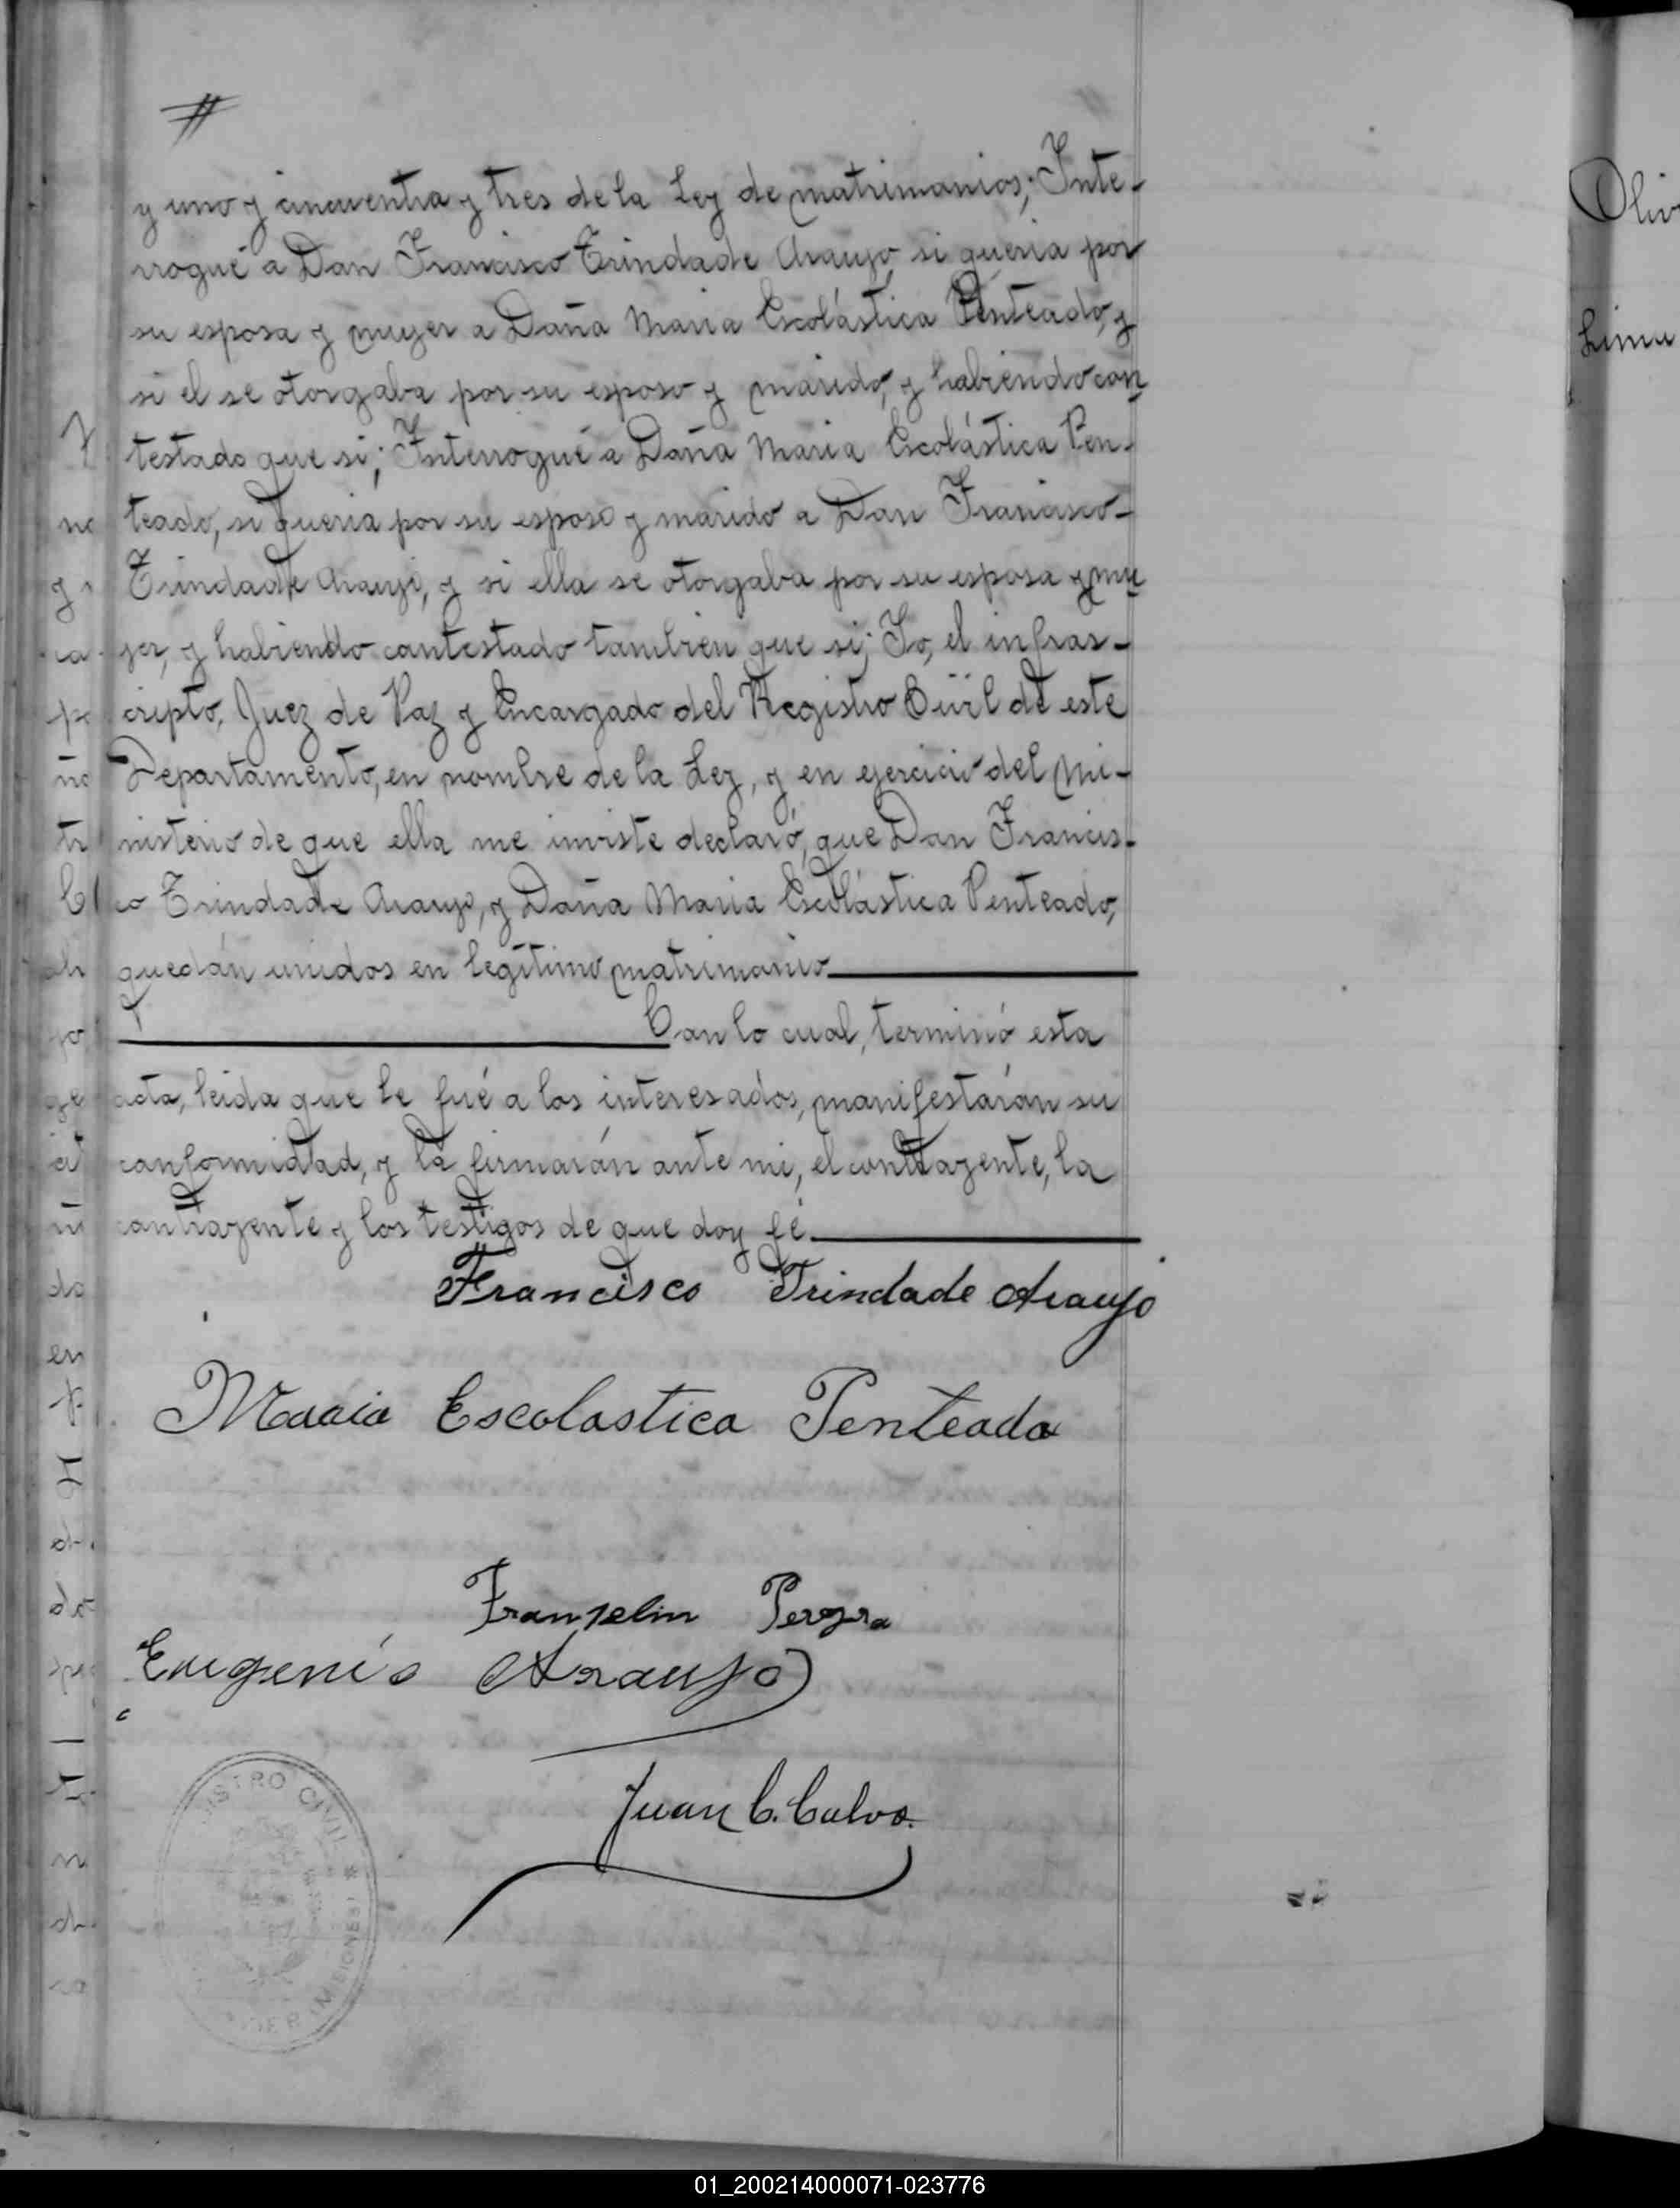 y uno y cincuentia y tres de la Ley de matrimonios; Inte-
rrogué a Don Francisco Trindade Araujo, si queria por
su esposa y mujer a Doña Maria Escolástica Penteado, y
si el se otorgaba por su esposo y marido, y habiendo con
testado que si; Interrogué a Doña Maria Escolástica Pen-
teado, si queria por su esposo y marido a Don Francisco-
Trindade Araujo, y si ella se otorgaba por su esposa y mu
jer, y habiendo contestado tambien que si; Yo, el infras-
cripto, Juez de Paz y Encargado del Registro Civil de este
Departamento, en nombre de la Ley, y en ejercicio del Mi-
nisterio de que ella me inviste declaró, que Don Francis-
co Trindade Araujo, y Doña Maria Escolástica Penteado,
quedán unidos en legítimo matrimonio
Con lo cual, terminó esta
acta, leida que le fué a los interesados, manifestarón su
conformidad, y la firmarón ante mi, el contrayente, la
contrayente y los testigos de que doy fé.
Francisco Trindade Araujo
Maria Escolastica Penteado
Pereyra
Eugenio Araujo
Juan C. Calvo.
ISTRO CIVIL
(MISIONES)
Oliv
01_200214000071-023776